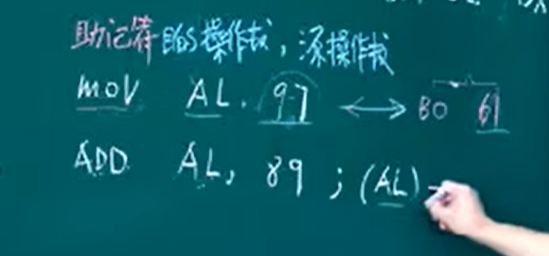 助记符 目的操作数,源操作数
MOV AL, 97 ⟷ B0 61
ADD AL, 89 ; (AL)